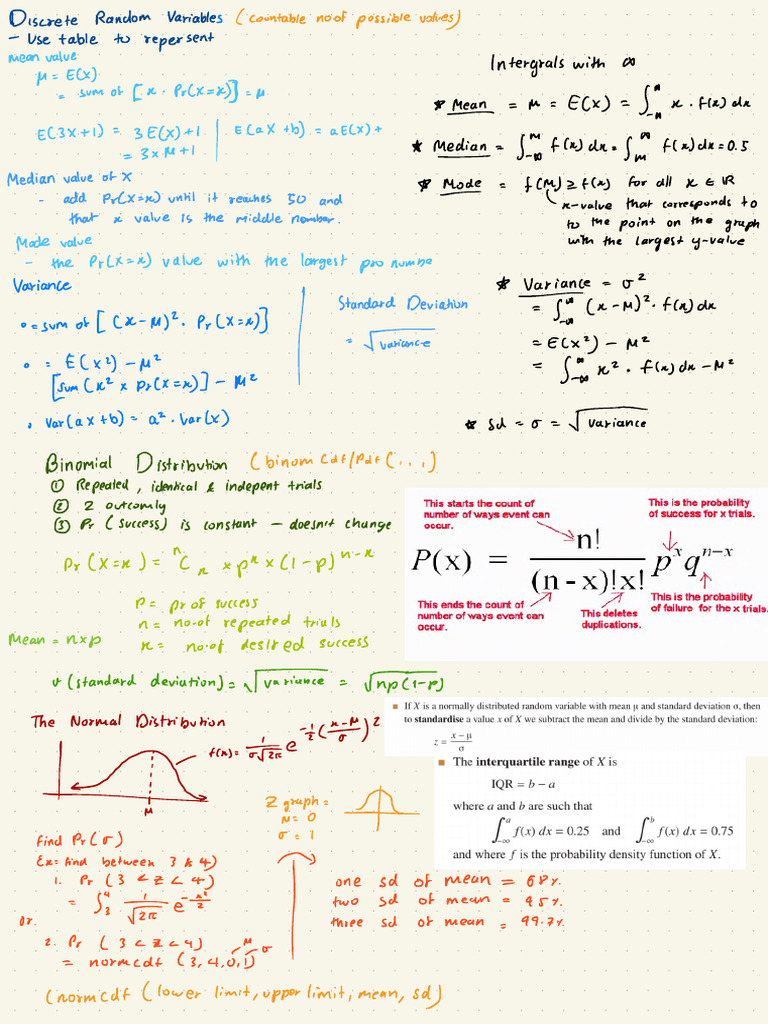 Discrete Random Variables (countable no of possible values)
- Use table to repersent
mean value
μ = E(x).
= sum of [x · Pr(X=x)] = μ
E(3X+1) = 3E(x)+1
= 3xμ+1
E(aX+b) = aE(x)+
Median value of X
- add Pr(X=x) until it reaches 50 and
that x value is the middle number.
Mode value
- the Pr(X=x) value with the largest pro numbe
Variance
= sum of [(x-μ)². Pr(X=x)]
= E(x²) - μ²
[sum (x² x pr(X=x)] - μ²
Var(ax+b) = a². Var(x)
Standard Deviation
= √variance
Intergrals with ∞
* Mean = μ = E(x) = ∫ x · f(x) dx
* Median = ∫_-∞^m f(x) dx = ∫_m^∞ f(x) dx = 0.5
* Mode = f(M) ≥ f(x) for all x ∈ ℝ
x-value that corresponds to
to the point on the graph
with the largest y-value
* Variance = σ²
= ∫_-∞^∞ (x-μ)². f(x) dx
= E(x²) - μ²
= ∫_-∞^∞ x². f(x) dx - μ²
* Sd = σ = √variance
Binomial Distribution (binom Cdf/Pdf (...)
① Repeated, identical & indepent trials
② 2 outcomly
③ Pr (success) is constant - doesn't change
Pr (X=x) = ⁿCₓ x pˣ x (1-p)ⁿ⁻ˣ
p = pr of success
n = no·of repeated trials
x = no·of desired success
Mean = n x p
(standard deviation) = √variance = √np(1-p)
This starts the count of
number of ways event can
occur.
This is the probability
of success for x trials.
P(x) = n! / (n - x)!x! pˣqⁿ⁻ˣ
This ends the count of
number of ways event can
occur.
This deletes
duplications.
This is the probability
of failure for the x trials.
The Normal Distribution
f(x) = 1/(σ√2π) e^(-1/2((x-μ)/σ)²)
μ
■ If X is a normally distributed random variable with mean μ and standard deviation σ, then
to standardise a value x of X we subtract the mean and divide by the standard deviation:
z = (x - μ)/σ
■ The interquartile range of X is
IQR = b - a
where a and b are such that
∫_-∞^a f(x) dx = 0.25 and ∫_-∞^b f(x) dx = 0.75
and where f is the probability density function of X.
Z graph =
μ = 0
σ = 1
find Pr(σ)
Ex: find between 3 & 4)
1. Pr (3 < z < 4)
= ∫_3^4 1/√2π e^(-x²/2)
or.
2. Pr (3 < z < 4)
μ σ
= normcdf (3, 4, 0, 1)
one sd of mean = 68%.
two sd of mean = 95%.
three sd of mean = 99.7%
(normcdf (lower limit, upper limit, mean, sd)